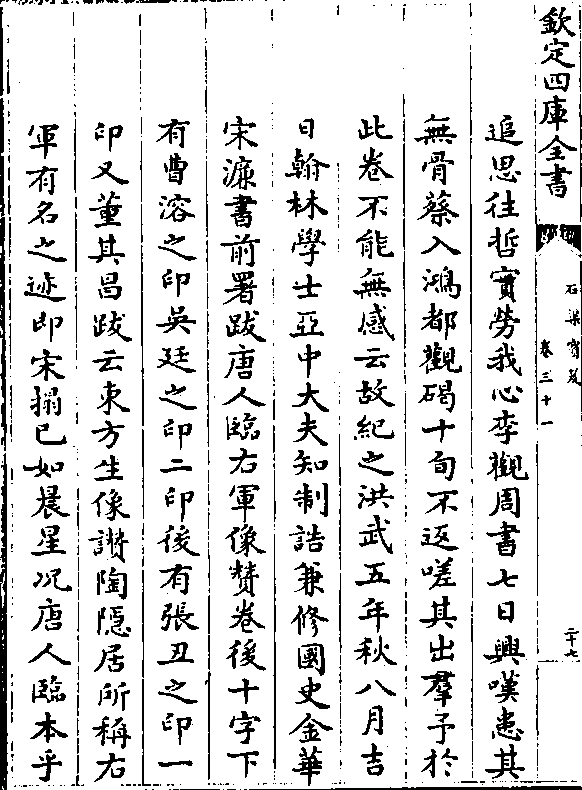 欽定四庫全書
石渠寶笈
卷三十一
二十七
追思往哲實勞我心李觀周書七日興嘆患其
無骨蔡入鴻都觀碣十旬不返嗟其出羣予於
此卷不能無感云故紀之洪武五年秋八月吉
日翰林學士亞中大夫知制誥兼修國史金華
宋濂書前署跋唐人臨右軍像贊卷後十字下
有曹溶之印吳廷之印二印後有張丑之印一
印又董其昌跋云東方生像讚陶隱居所稱右
軍有名之迹即宋搨已如晨星况唐人臨本乎